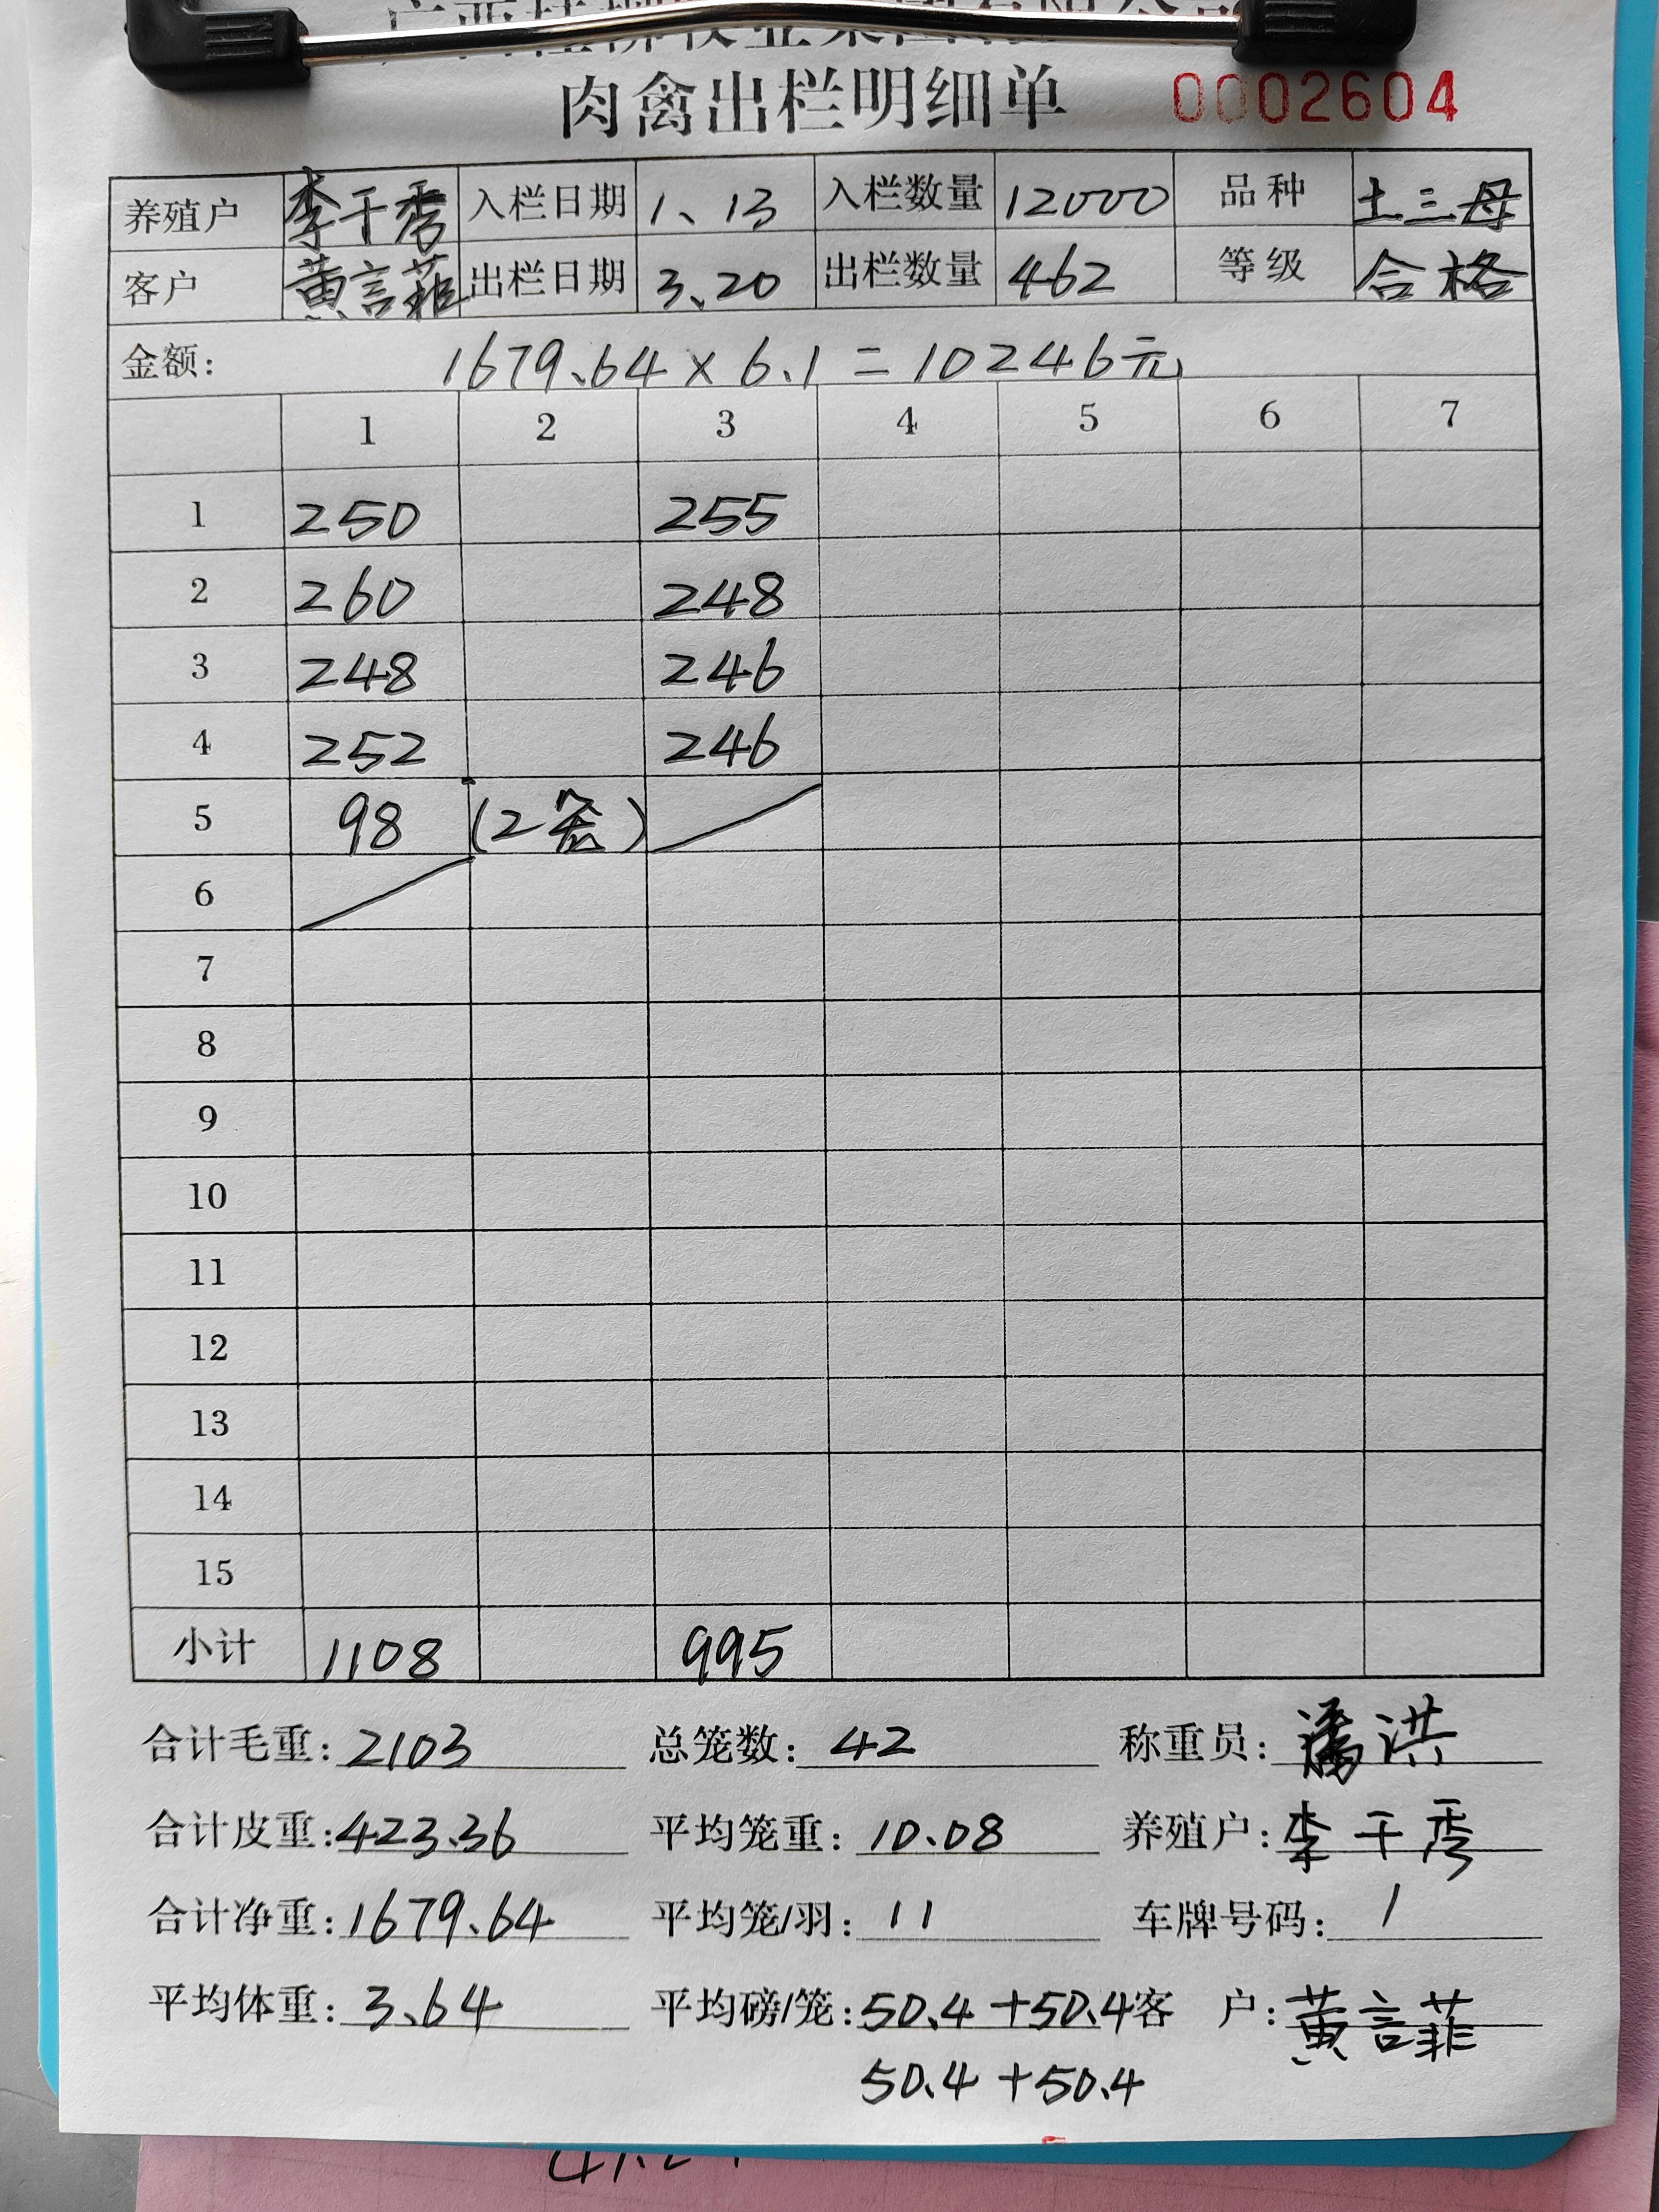 肉禽出栏明细单 0002604
养殖户 李干秀 入栏日期 1、13 入栏数量 12000 品种 土三母
客户 黄言菲 出栏日期 3、20 出栏数量 462 等级 合格
金额: 1679.64 × 6.1 = 10246元
1 2 3 4 5 6 7
1 250 255
2 260 248
3 248 246
4 252 246
5 98 (2笼)
6
7
8
9
10
11
12
13
14
15
小计 1108 995
合计毛重: 2103 总笼数: 42 称重员: 潘洪
合计皮重: 423.36 平均笼重: 10.08 养殖户: 李干秀
合计净重: 1679.64 平均笼/羽: 11 车牌号码: /
平均体重: 3.64 平均磅/笼: 50.4+50.4 客 户: 黄言菲
50.4+50.4